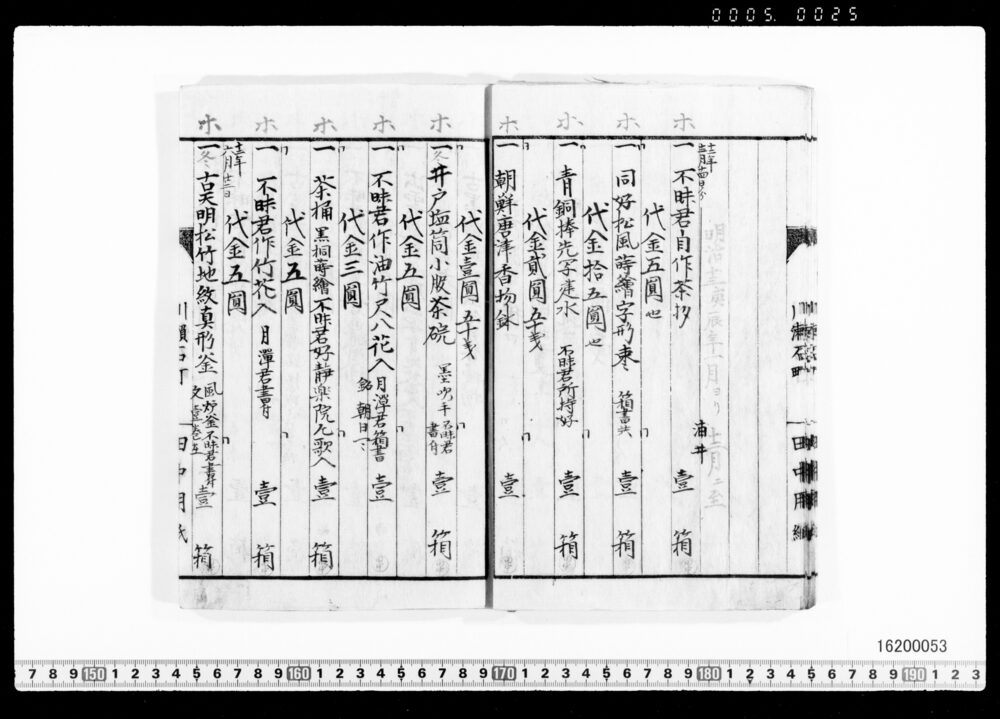 0005. 0025
ホ ホ ホ ホ ホ ホ ホ ホ ホ
油井
一 不昧君自作茶杓 壹 箱
代金五圓也
一 同好松風蒔繪字形棗 箱書共 壹 箱
代金拾五圓也
一 青銅捧先字建水 不昧君所持好 壹 箱
代金貳圓五十戔
一 朝鮮唐津香物鉢 壹
代金壹圓五十戔
一 井戸塩筒小服茶碗 不昧君書付 壹 箱
代金五圓
一 不昧君作油竹尺八花入 月潭君箱書 銘 朝日 壹
代金三圓
一 茶桶 黒桐蒔繪 不昧君好 静楽院 歌入 壹 箱
代金五圓
一 不昧君作竹花入 月潭君書付 壹 箱
代金五圓
一 古天明松竹地紋真形釜 風炉釜不昧君書付 壹 箱
川瀬石町 田中用紙
16200053
7 8 9 150 1 2 3 4 5 6 7 8 9 160 1 2 3 4 5 6 7 8 9 170 1 2 3 4 5 6 7 8 9 180 1 2 3 4 5 6 7 8 9 190 1 2 3